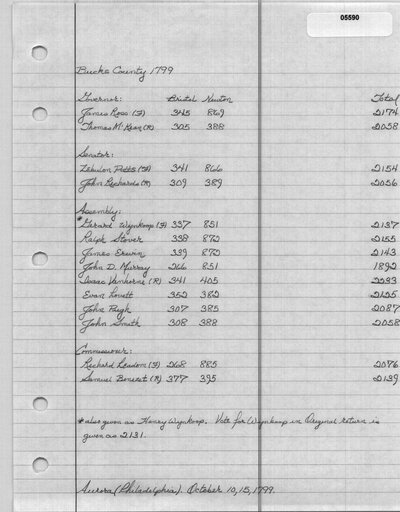 05590
Bucks County 1799
Governor: Bristol Newton Total
James Ross (F) 345 869 2174
Thomas McKean (R) 305 388 2058
Senator:
Zebulon Potts (F) 341 866 2154
John Richards (R) 309 389 2056
Assembly:
*Gerard Wynkoop (F) 337 851 2137
Ralph Stover 338 872 2155
James Erwin 339 872 2143
John D. Murray 266 851 1892
Isaac Vanhorne (R) 341 405 2233
Evan Lovett 352 382 2125
John Pugh 307 385 2087
John Smith 308 388 2058
Commissioner:
Richard Leadom (F) 268 885 2076
Samuel Benezet (R) 377 395 2139
*also given as Henry Wynkoop. Vote for Wynkoop in Original return is
given as 2131.
Aurora (Philadelphia). October 10, 15, 1799.